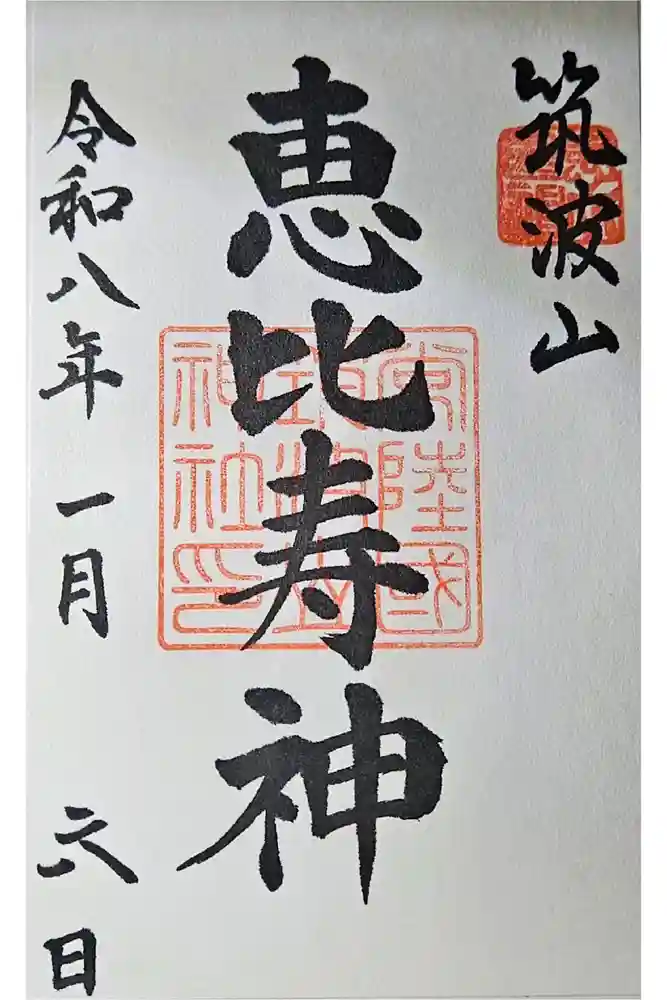 筑波山
恵比寿神
常陸國
筑波山
神社印
令和八年一月六日